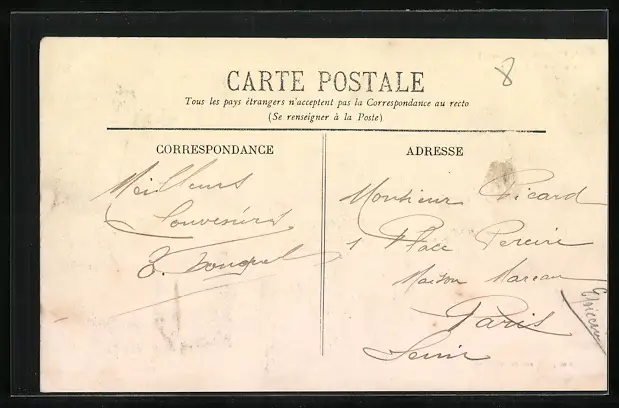 8
CARTE POSTALE
Tous les pays étrangers n'acceptent pas la Correspondance au recto
(Se renseigner à la Poste)
CORRESPONDANCE
Meilleurs
Souvenirs
ADRESSE
Monsieur Picard
1 Place Pereire
Maison Marceau
Epicerie
Paris
Seine